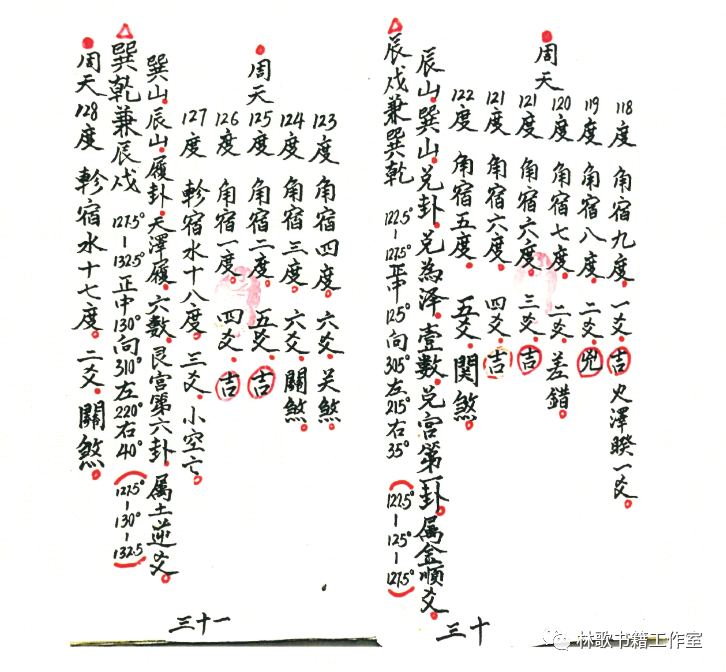 118度 角宿九度。一爻。吉 火泽睽一爻。
119度 角宿八度。二爻。兇
周天 120度 角宿七度。二爻差錯。
121度 角宿六度。三爻。吉
121度 角宿六度。四爻。吉
122度 角宿五度。五爻。関煞。
辰山。巽山。兑卦。兑為泽。壹數。兑宫第一卦。属金順爻。
辰戌兼巽乾 122.5°-127.5° 正中125°向305°左215°右35°(122.5°-125°-127.5°)
三十
123度 角宿四度。六爻。关煞。
124度 角宿三度。六爻。關煞。
周天 125度 角宿二度。五爻。吉
126度 角宿一度。四爻。吉
127度 轸宿水十八度。三爻。小空亡。
巽山。辰山。履卦。天澤履。六數。艮宫第六卦。属土逆爻。
巽乾兼辰戌 127.5°-132.5° 正中130°向310°左220°右40°(127.5°-130°-132.5)
周天128度 轸宿水十七度。二爻。關煞。
三十一
林歌书籍工作室